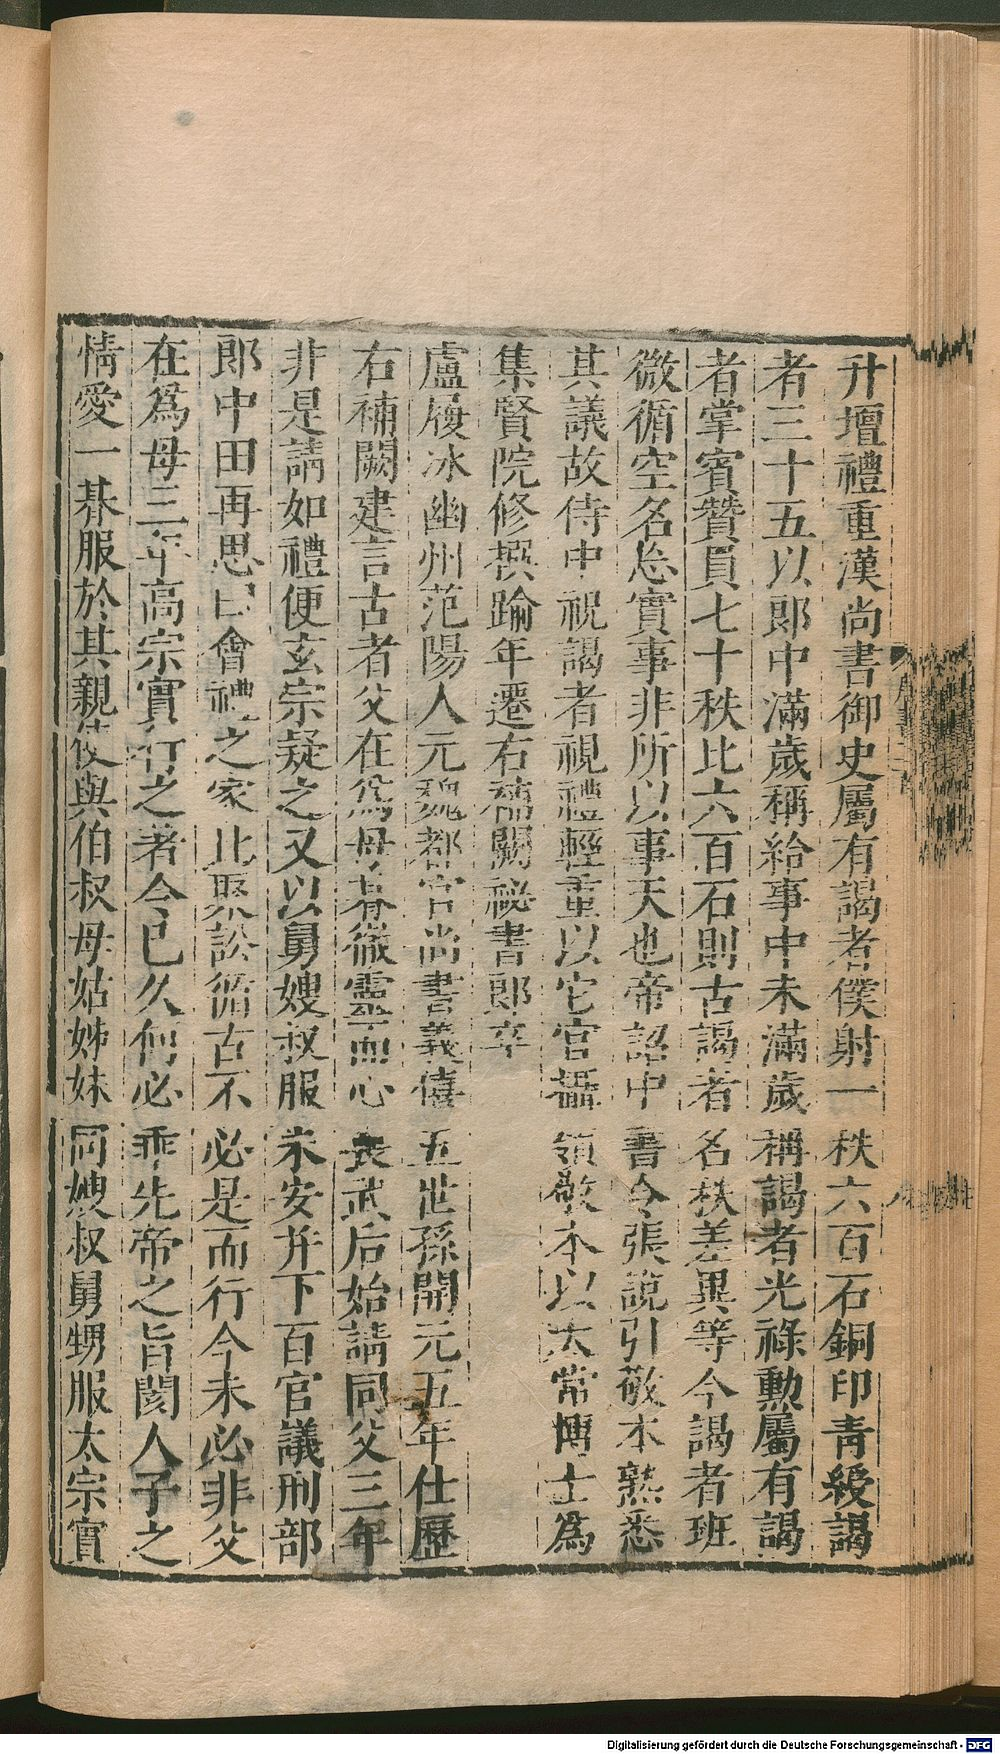 升壇禮重漢尚書御史屬有謁者僕射一秩六百石銅印青綬謁
者三十五以郎中滿歲稱給事中未滿歲稱謁者光祿勳屬有謁
者掌賓贊員七十秩比六百石則古謁者名秩差異等今謁者班
微循空名忘實事非所以事天也帝詔中書令張說引敬本熟悉
其議故侍中祝謁者視禮輕重以它官攝領敬本以太常博士爲
集賢院修撰踰年遷右補闕祕書郎卒
盧履冰幽州范陽人元魏都官尚書義僖五世孫開元五年仕歷
右補闕建言古者父在爲母朞徹靈而心喪武后始請同父三年
非是請如禮便玄宗疑之又以舅嫂叔服未安并下百官議刑部
郎中田再思曰會禮之家比聚訟循古不必是而行今未必非父
在爲母三年高宗實行之著令已久何必乖先帝之旨閡人子之
情愛一朞服於其親使與伯叔母姑姊妹同嫂叔舅甥服太宗實
Digitalisierung gefördert durch die Deutsche Forschungsgemeinschaft - DFG